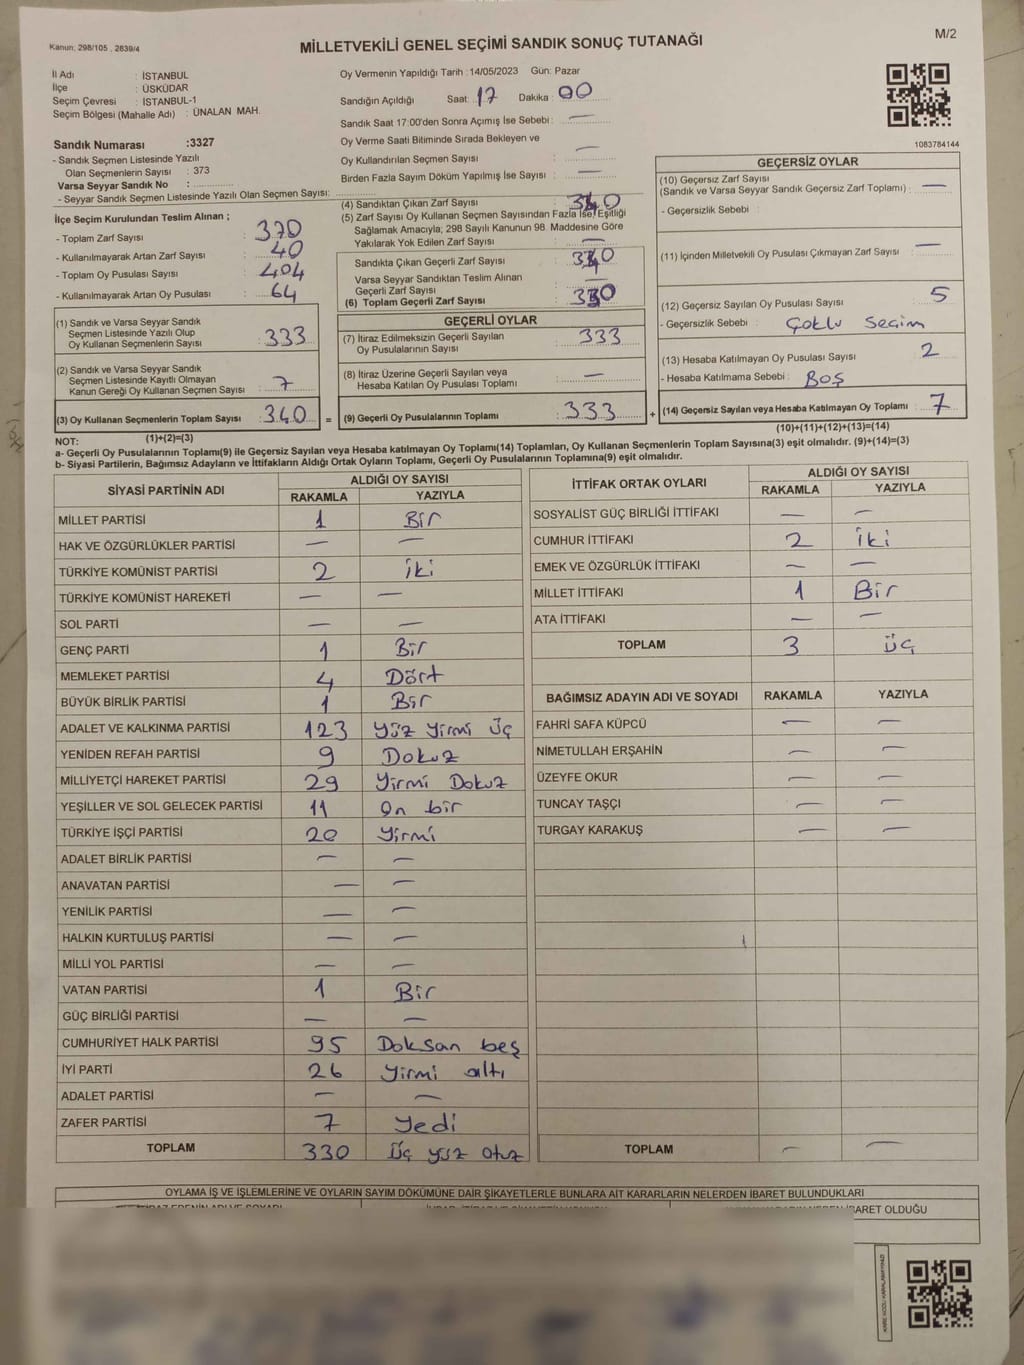 Kanun: 298/105 , 2839/4
MİLLETVEKİLİ GENEL SEÇİMİ SANDIK SONUÇ TUTANAĞI
M/2
İl Adı : İSTANBUL
İlçe : ÜSKÜDAR
Seçim Çevresi : İSTANBUL-1
Seçim Bölgesi (Mahalle Adı) : ÜNALAN MAH.
Sandık Numarası :3327
- Sandık Seçmen Listesinde Yazılı
Olan Seçmenlerin Sayısı : 373
Varsa Seyyar Sandık No :
- Seyyar Sandık Seçmen Listesinde Yazılı Olan Seçmen Sayısı:
Oy Vermenin Yapıldığı Tarih :14/05/2023 Gün: Pazar
Sandığın Açıldığı Saat 17 Dakika : 00
Sandık Saat 17:00'den Sonra Açımış İse Sebebi : —
Oy Verme Saati Bitiminde Sırada Bekleyen ve
Oy Kullandırılan Seçmen Sayısı : —
Birden Fazla Sayım Döküm Yapılmış İse Sayısı : —
1083784144
İlçe Seçim Kurulundan Teslim Alınan ;
- Toplam Zarf Sayısı : 370
- Kullanılmayarak Artan Zarf Sayısı : 40
- Toplam Oy Pusulası Sayısı : 404
- Kullanılmayarak Artan Oy Pusulası : 64
(1) Sandık ve Varsa Seyyar Sandık
Seçmen Listesinde Yazılı Olup
Oy Kullanan Seçmenlerin Sayısı : 333
(2) Sandık ve Varsa Seyyar Sandık
Seçmen Listesinde Kayıtlı Olmayan
Kanun Gereği Oy Kullanan Seçmen Sayısı : 7
(3) Oy Kullanan Seçmenlerin Toplam Sayısı : 340 =
(1)+(2)=(3)
(4) Sandıktan Çıkan Zarf Sayısı : 340
(5) Zarf Sayısı Oy Kullanan Seçmen Sayısından Fazla İse, Eşitliği
Sağlamak Amacıyla; 298 Sayılı Kanunun 98. Maddesine Göre
Yakılarak Yok Edilen Zarf Sayısı : —
Sandıkta Çıkan Geçerli Zarf Sayısı : 340
Varsa Seyyar Sandıktan Teslim Alınan
Geçerli Zarf Sayısı : —
(6) Toplam Geçerli Zarf Sayısı :
GEÇERLİ OYLAR
(7) İtiraz Edilmeksizin Geçerli Sayılan
Oy Pusulalarının Sayısı : 333
(8) İtiraz Üzerine Geçerli Sayılan veya
Hesaba Katılan Oy Pusulası Toplamı : —
(9) Geçerli Oy Pusulalarının Toplamı : 333 +
GEÇERSİZ OYLAR
(10) Geçersiz Zarf Sayısı
(Sandık ve Varsa Seyyar Sandık Geçersiz Zarf Toplamı) : —
- Geçersizlik Sebebi :
(11) İçinden Milletvekili Oy Pusulası Çıkmayan Zarf Sayısı : —
(12) Geçersiz Sayılan Oy Pusulası Sayısı : 5
- Geçersizlik Sebebi : Çoklu Seçim
(13) Hesaba Katılmayan Oy Pusulası Sayısı : 2
- Hesaba Katılmama Sebebi : Boş
(14) Geçersiz Sayılan veya Hesaba Katılmayan Oy Toplamı : 7
(10)+(11)+(12)+(13)=(14)
NOT:
a- Geçerli Oy Pusulalarının Toplamı(9) ile Geçersiz Sayılan veya Hesaba katılmayan Oy Toplamı(14) Toplamları, Oy Kullanan Seçmenlerin Toplam Sayısına(3) eşit olmalıdır. (9)+(14)=(3)
b- Siyasi Partilerin, Bağımsız Adayların ve İttifakların Aldığı Ortak Oyların Toplamı, Geçerli Oy Pusulalarının Toplamına(9) eşit olmalıdır.
SİYASİ PARTİNİN ADI ALDIĞI OY SAYISI
RAKAMLA YAZIYLA
MİLLET PARTİSİ 1 Bir
HAK VE ÖZGÜRLÜKLER PARTİSİ — —
TÜRKİYE KOMÜNİST PARTİSİ 2 İki
TÜRKİYE KOMÜNİST HAREKETİ — —
SOL PARTİ — —
GENÇ PARTİ 1 Bir
MEMLEKET PARTİSİ 4 Dört
BÜYÜK BİRLİK PARTİSİ 1 Bir
ADALET VE KALKINMA PARTİSİ 123 Yüz Yirmi Üç
YENİDEN REFAH PARTİSİ 9 Dokuz
MİLLİYETÇİ HAREKET PARTİSİ 29 Yirmi Dokuz
YEŞİLLER VE SOL GELECEK PARTİSİ 11 On bir
TÜRKİYE İŞÇİ PARTİSİ 20 Yirmi
ADALET BİRLİK PARTİSİ — —
ANAVATAN PARTİSİ — —
YENİLİK PARTİSİ — —
HALKIN KURTULUŞ PARTİSİ — —
MİLLİ YOL PARTİSİ — —
VATAN PARTİSİ 1 Bir
GÜÇ BİRLİĞİ PARTİSİ — —
CUMHURİYET HALK PARTİSİ 95 Doksan beş
İYİ PARTİ 26 Yirmi altı
ADALET PARTİSİ — —
ZAFER PARTİSİ 7 Yedi
TOPLAM 330 Üç yüz otuz
İTTİFAK ORTAK OYLARI ALDIĞI OY SAYISI
RAKAMLA YAZIYLA
SOSYALİST GÜÇ BİRLİĞİ İTTİFAKI — —
CUMHUR İTTİFAKI 2 İki
EMEK VE ÖZGÜRLÜK İTTİFAKI — —
MİLLET İTTİFAKI 1 Bir
ATA İTTİFAKI — —
TOPLAM 3 Üç
BAĞIMSIZ ADAYIN ADI VE SOYADI RAKAMLA YAZIYLA
FAHRİ SAFA KÜPCÜ — —
NİMETULLAH ERŞAHİN — —
ÜZEYFE OKUR — —
TUNCAY TAŞÇI — —
TURGAY KARAKUŞ — —
TOPLAM — —
OYLAMA İŞ VE İŞLEMLERİNE VE OYLARIN SAYIM DÖKÜMÜNE DAİR ŞİKAYETLERLE BUNLARA AİT KARARLARIN NELERDEN İBARET BULUNDUKLARI
İBARET OLDUĞU